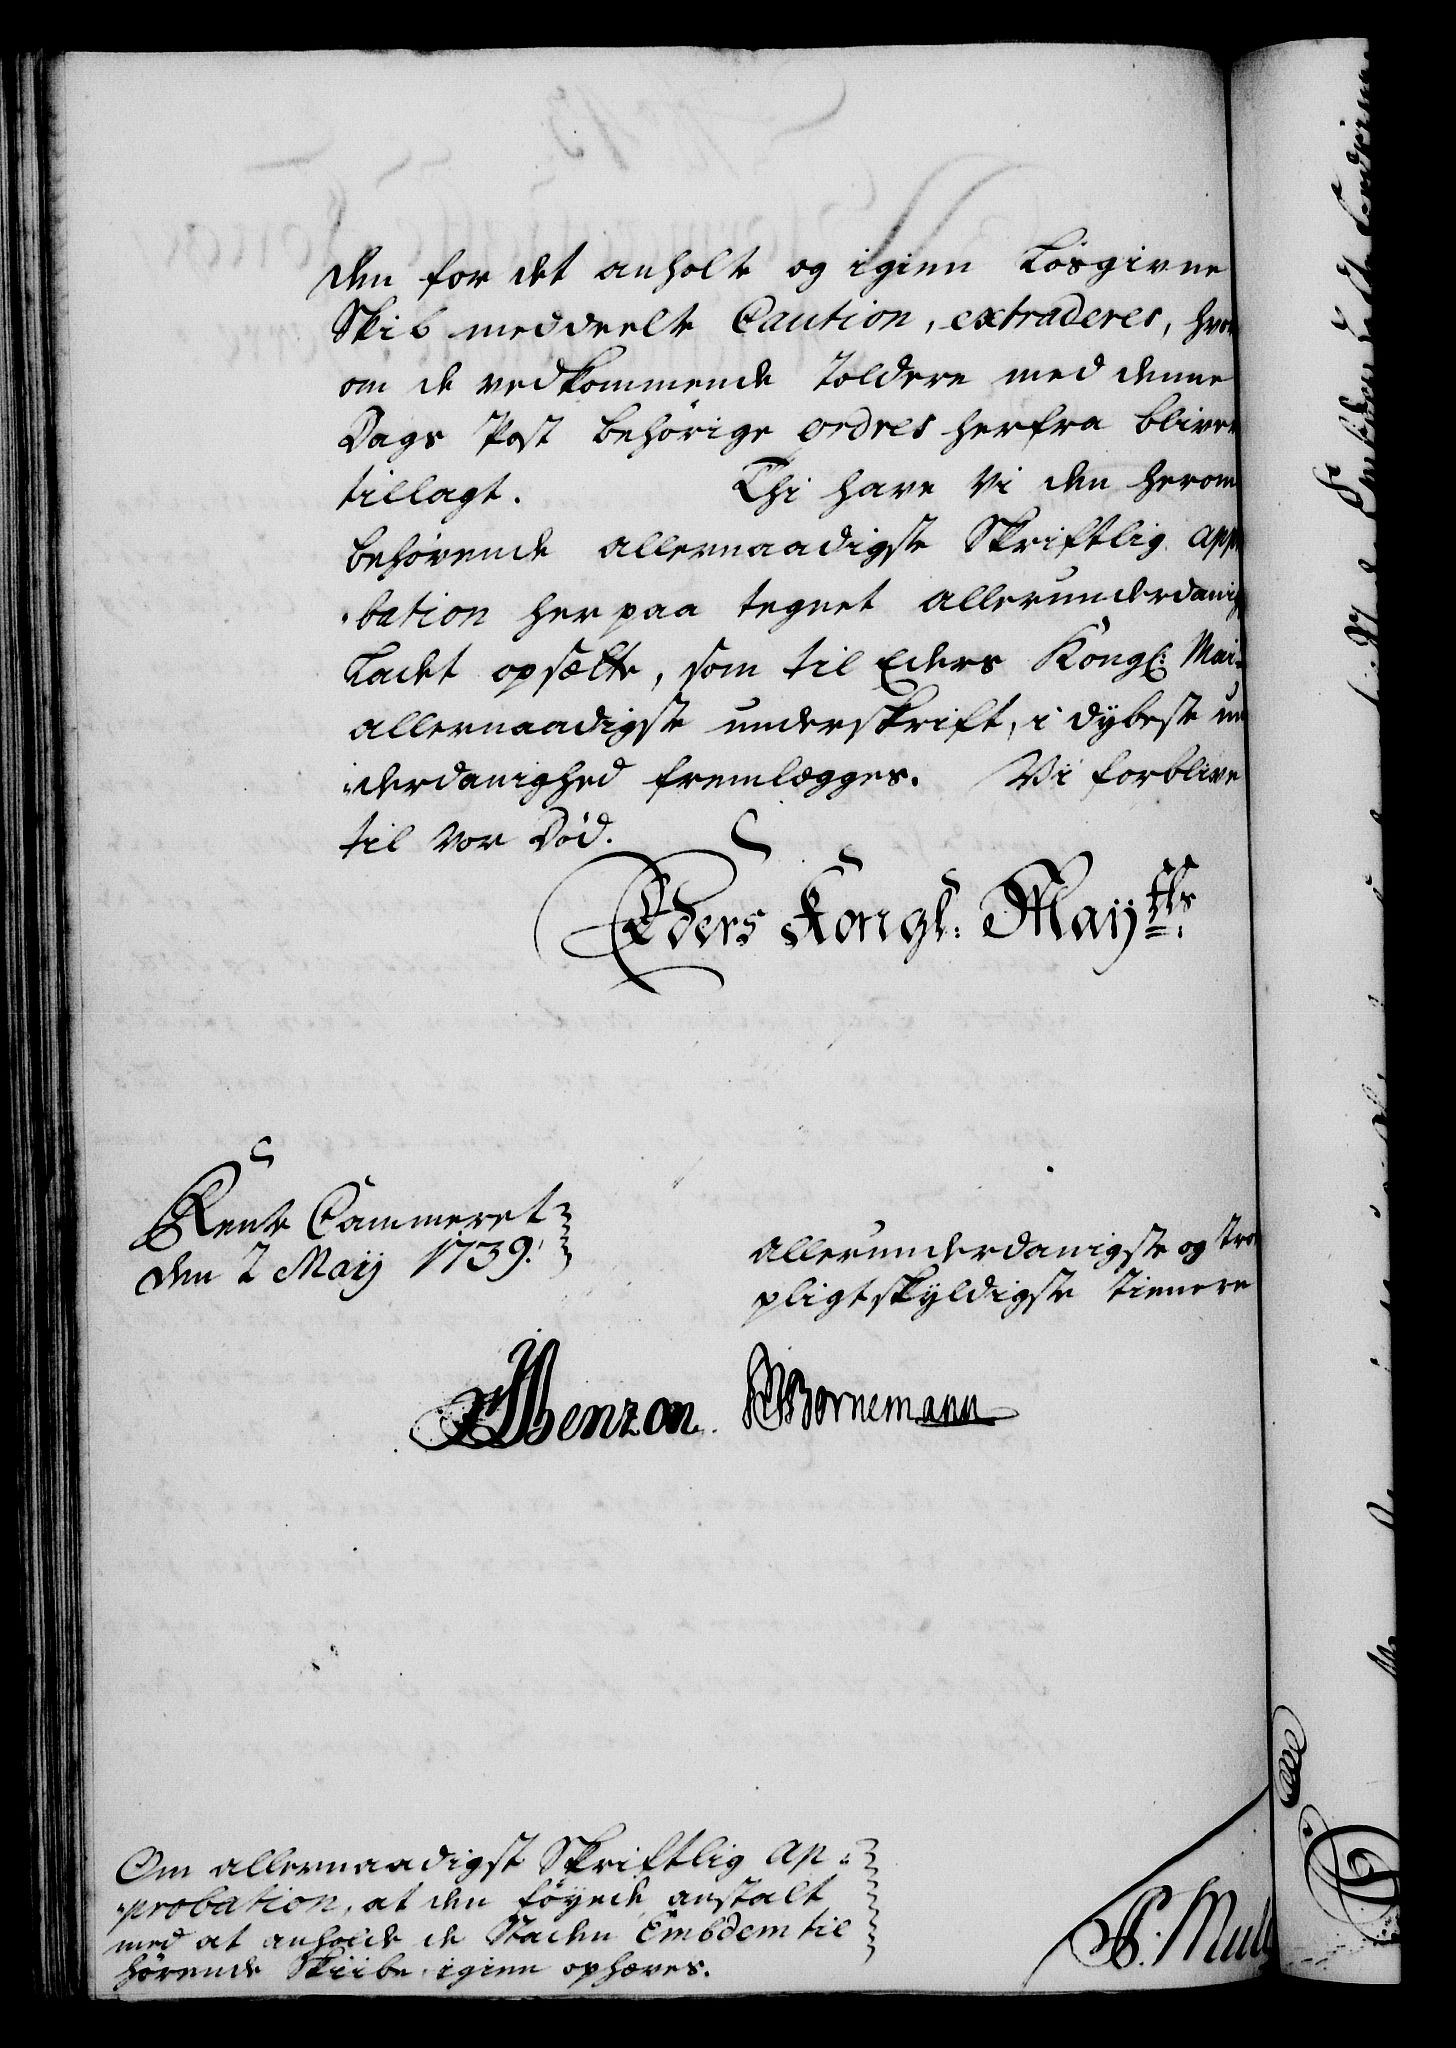 den for det anholte og igien Løsgivne
Skib meddeelte Caution, extraderes, hvor
om de vedkommende Toldere med denne
Dags Post behørige ordres herfra bliver
tillagt. Thi have Vi den herom
behørende allernaadigste Skriftlig App
bation her paa tegnet allerunderdanig
Ladet opsætte, som til Eders Kongl: Mai
allernaadigste underskrift, i dybeste un
derdanighed fremlægges. Vi forblive
til vor Død.
Eders Kongl: Maij:tts
Rente Cammeret
den 2 Maij 1739.
Allerunderdanigste og troe
pligtskyldigste tienere
Benzon Bornemann
Om allernaadigst Skriftlig Ap-
probation, at den føyede anstalt
med at anholde de Staden Embden til
hørende Skiibe igien ophæves.